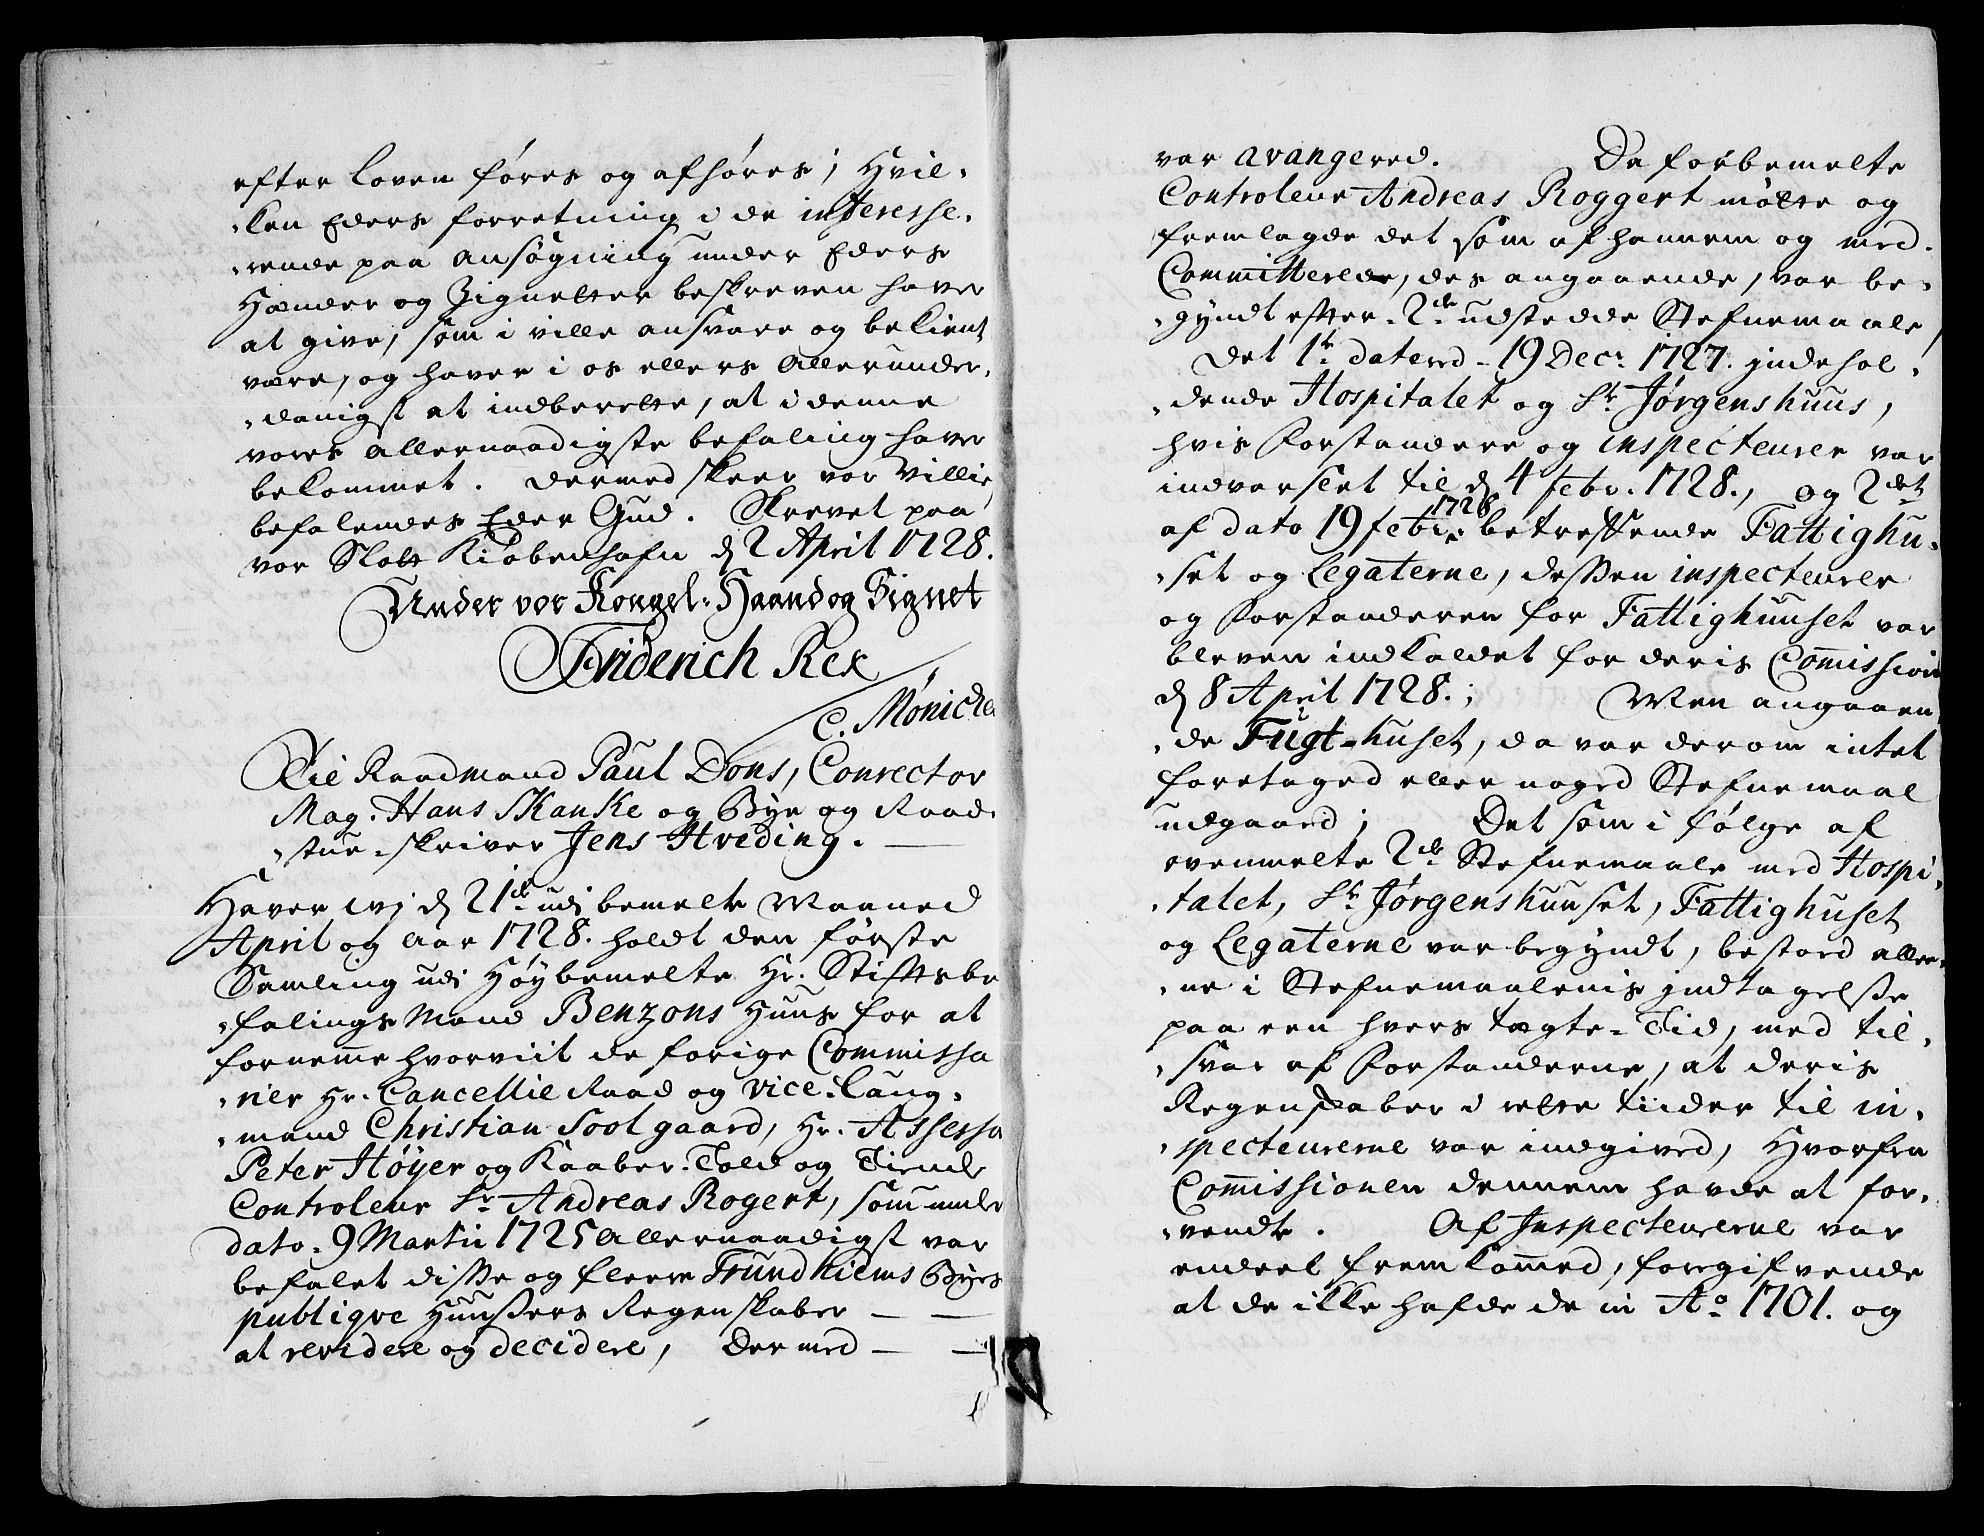 efter loven føres og afhøres; Hvil-
-ken Eders forretning i de interesse-
-rende paa ansøgning under Eders
Hænder og Zignetter beskreven haver
at give, som i ville ansvare og bekient
være, og haver i os ellers Allerunder-
-danigst at indberette, at i denne
vores allernaadigste befaling haver
bekommet. Dermed skeer vor Villie,
befalendes Eder Gud. Skrevet paa
vor Slott Kiøbenhafn d 2 April 1728.
Under vor Kongel: Haand og Zignet
Friderich Rex
C. Mønichen
Til Raadmand Paul Dons, Conrector
Mag. Hans Skanke og Bye og Raad-
-stue-skriver Jens Hveding.
Haver wj d 21de udj bemelte Maaned
April og aar 1728. holdt den første
Samling udi Høybemelte Hr. Stiftsbe
-falings Mand Benzons Huus for at
fornemme hvorviit de forige Commissa
-rier Hr. Cancellie Raad og Vice-Laug-
-mand Christian Soolgaard, Hr. Assessor
Peter Høyer og Kaaber-Told og Tiende
Controleur Sr. Andreas Rogert, som under
dato 9 Martii 1725 Allernaadigst var
befalet disse og fleere Trundhiems Byes
publiqve Huusers Regenskaber
at revidere og decidere, Der med
var avangered. Da forbemelte
Controleur Andreas Roggert møtte og
fremlagde det som af hannem og med-
Committerede, des angaaende, var be-
-gyndt efter 2de udstedde Stefnemaale,
Det 1te datered 19 Decr. 1727. jndehol-
-dende Hospitalet og St. Jørgenshuus,
hvis Forstandere og inspecteurer var
indvarslet til d 4 febr. 1728., og 2det
af dato 19 febr. 1728 betreffende Fattighu-
-set og Legaterne, dessen inspecteurer
og Forstanderen for Fattighuuset var
bleven indkaldet for deris Commission
d 8 April 1728.; Men angaaen-
-de Tugt-huset, da var derom intet
foretaged eller noged Stefnemaal
udgaaed; Det som i følge af
ovenmelte 2de Stefnemaale med Hospi-
-talet, St. Jørgenshuuset, Fattighuset
og Legaterne var begyndt, bestoed allee-
-ne i Stefnemaalenis jndtagelse
paa een hvers tægte-Tid, med til-
-svar af Forstanderne, at deris
Regenskaber i rette tiider til in-
-specteurerne var indgived, Hvorfra
Commissionen dennem havde at for-
-vendte. Af Inspecteurerne var
endeel fremkommed, foregifvende
at de ikke hafde de in Ao. 1701. og